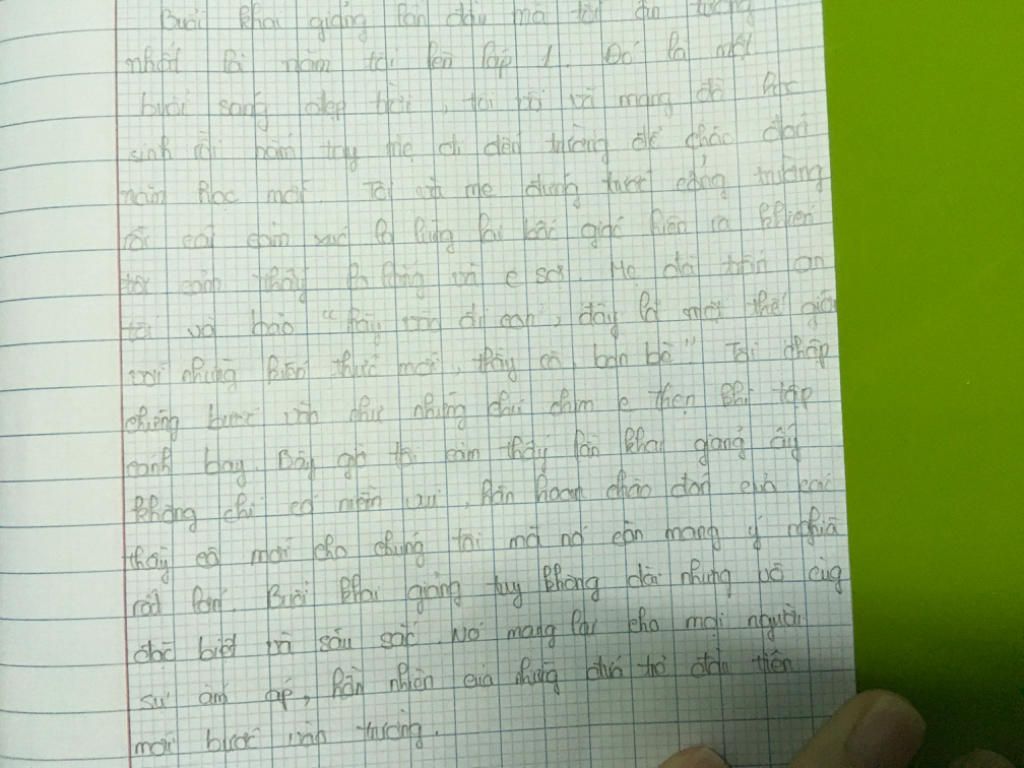 Buổi khai giảng lần đầu mà tôi ấn tượng
nhất là năm tôi lên lớp 1. Đó là một
buổi sáng đẹp trời, tôi và mang đồ học
sinh rồi nắm tay mẹ đi đến trường để chào đón
năm học mới. Tôi và mẹ đứng trước cổng trường
rồi cái cảm xúc lạ lùng lại bất giác hiện ra khiến
tôi cảm thấy lo lắng và e sợ. Mẹ đã trấn an
tôi và bảo "hãy vào đi con, đây là một thế giới
với những kiến thức mới, thầy cô, bạn bè" Tôi chập
chững bước vào như những chú chim e thẹn khi tập
cánh bay. Bây giờ tôi cảm thấy lần khai giảng ấy
không chỉ có niềm vui, hân hoan chào đón của các
thầy cô mới cho chúng tôi mà nó còn mang ý nghĩa
rất lớn. Buổi khai giảng tuy không dài nhưng vô cùg
đặc biệt và sâu sắc. Nó mang lại cho mọi người
sự ấm áp, hồn nhiên của những đứa trẻ đầu tiên
mới bước vào trường.